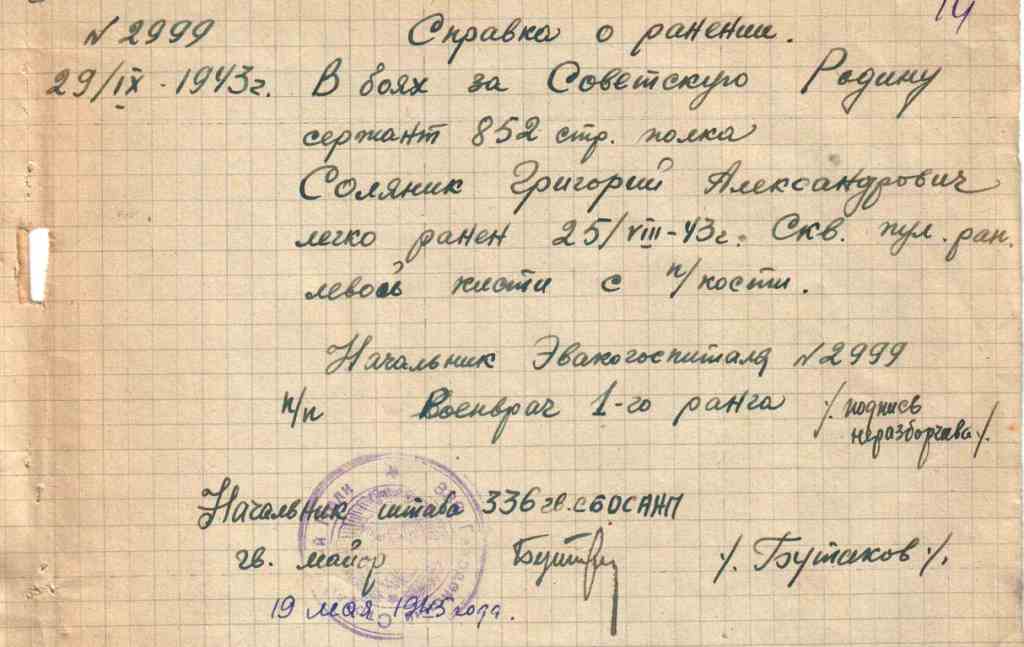 14
№ 2999 Справка о ранении.
29/IX - 1943г. В боях за Советскую Родину
сержант 852 стр. полка
Соляник Григорий Александрович
легко ранен 25/VIII-43г. Скв. пул. ран.
левой кисти с п/кости.
Начальник Эвакогоспиталя №2999
п/п Военврач 1-го ранга /. подпись
неразборчива /.
Начальник штаба 336 гв.
гв. майор /. Бутаков /.
19 мая 1945 года.